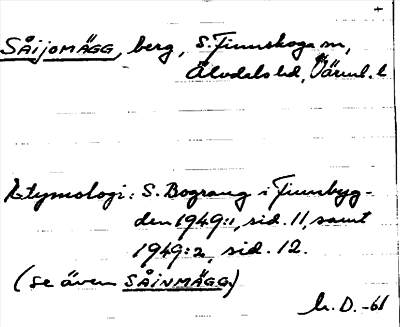 +
SÅIJOMÄGG, berg, S. Finnskoga sn,
Älvdals hd, Värml. l
Etymologi: S. Bograng i Finnbyg-
den 1949:1, sid. 11, samt
1949:2, sid. 12.
(se även SÅINMÄGG.)
h. D. -61